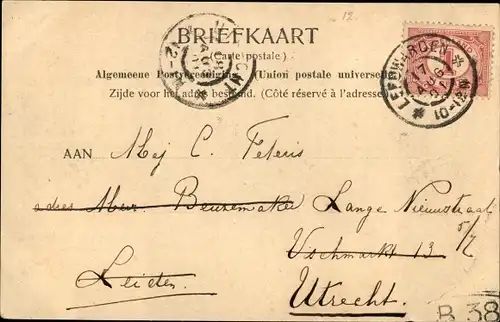 12.
BRIEFKAART
(Carte postale)
Algemeene Postvereeniging (Union postale universelle)
Zijde voor het adres bestemd. (Côté réservé à l'adresse)
LEEUWARDEN
AAN Mej C. Feteris
adres Mevr. Beuzemaker Lange Nieuwstraat
5/7
Vischmarkt 13
Leiden. Utrecht.
B 38